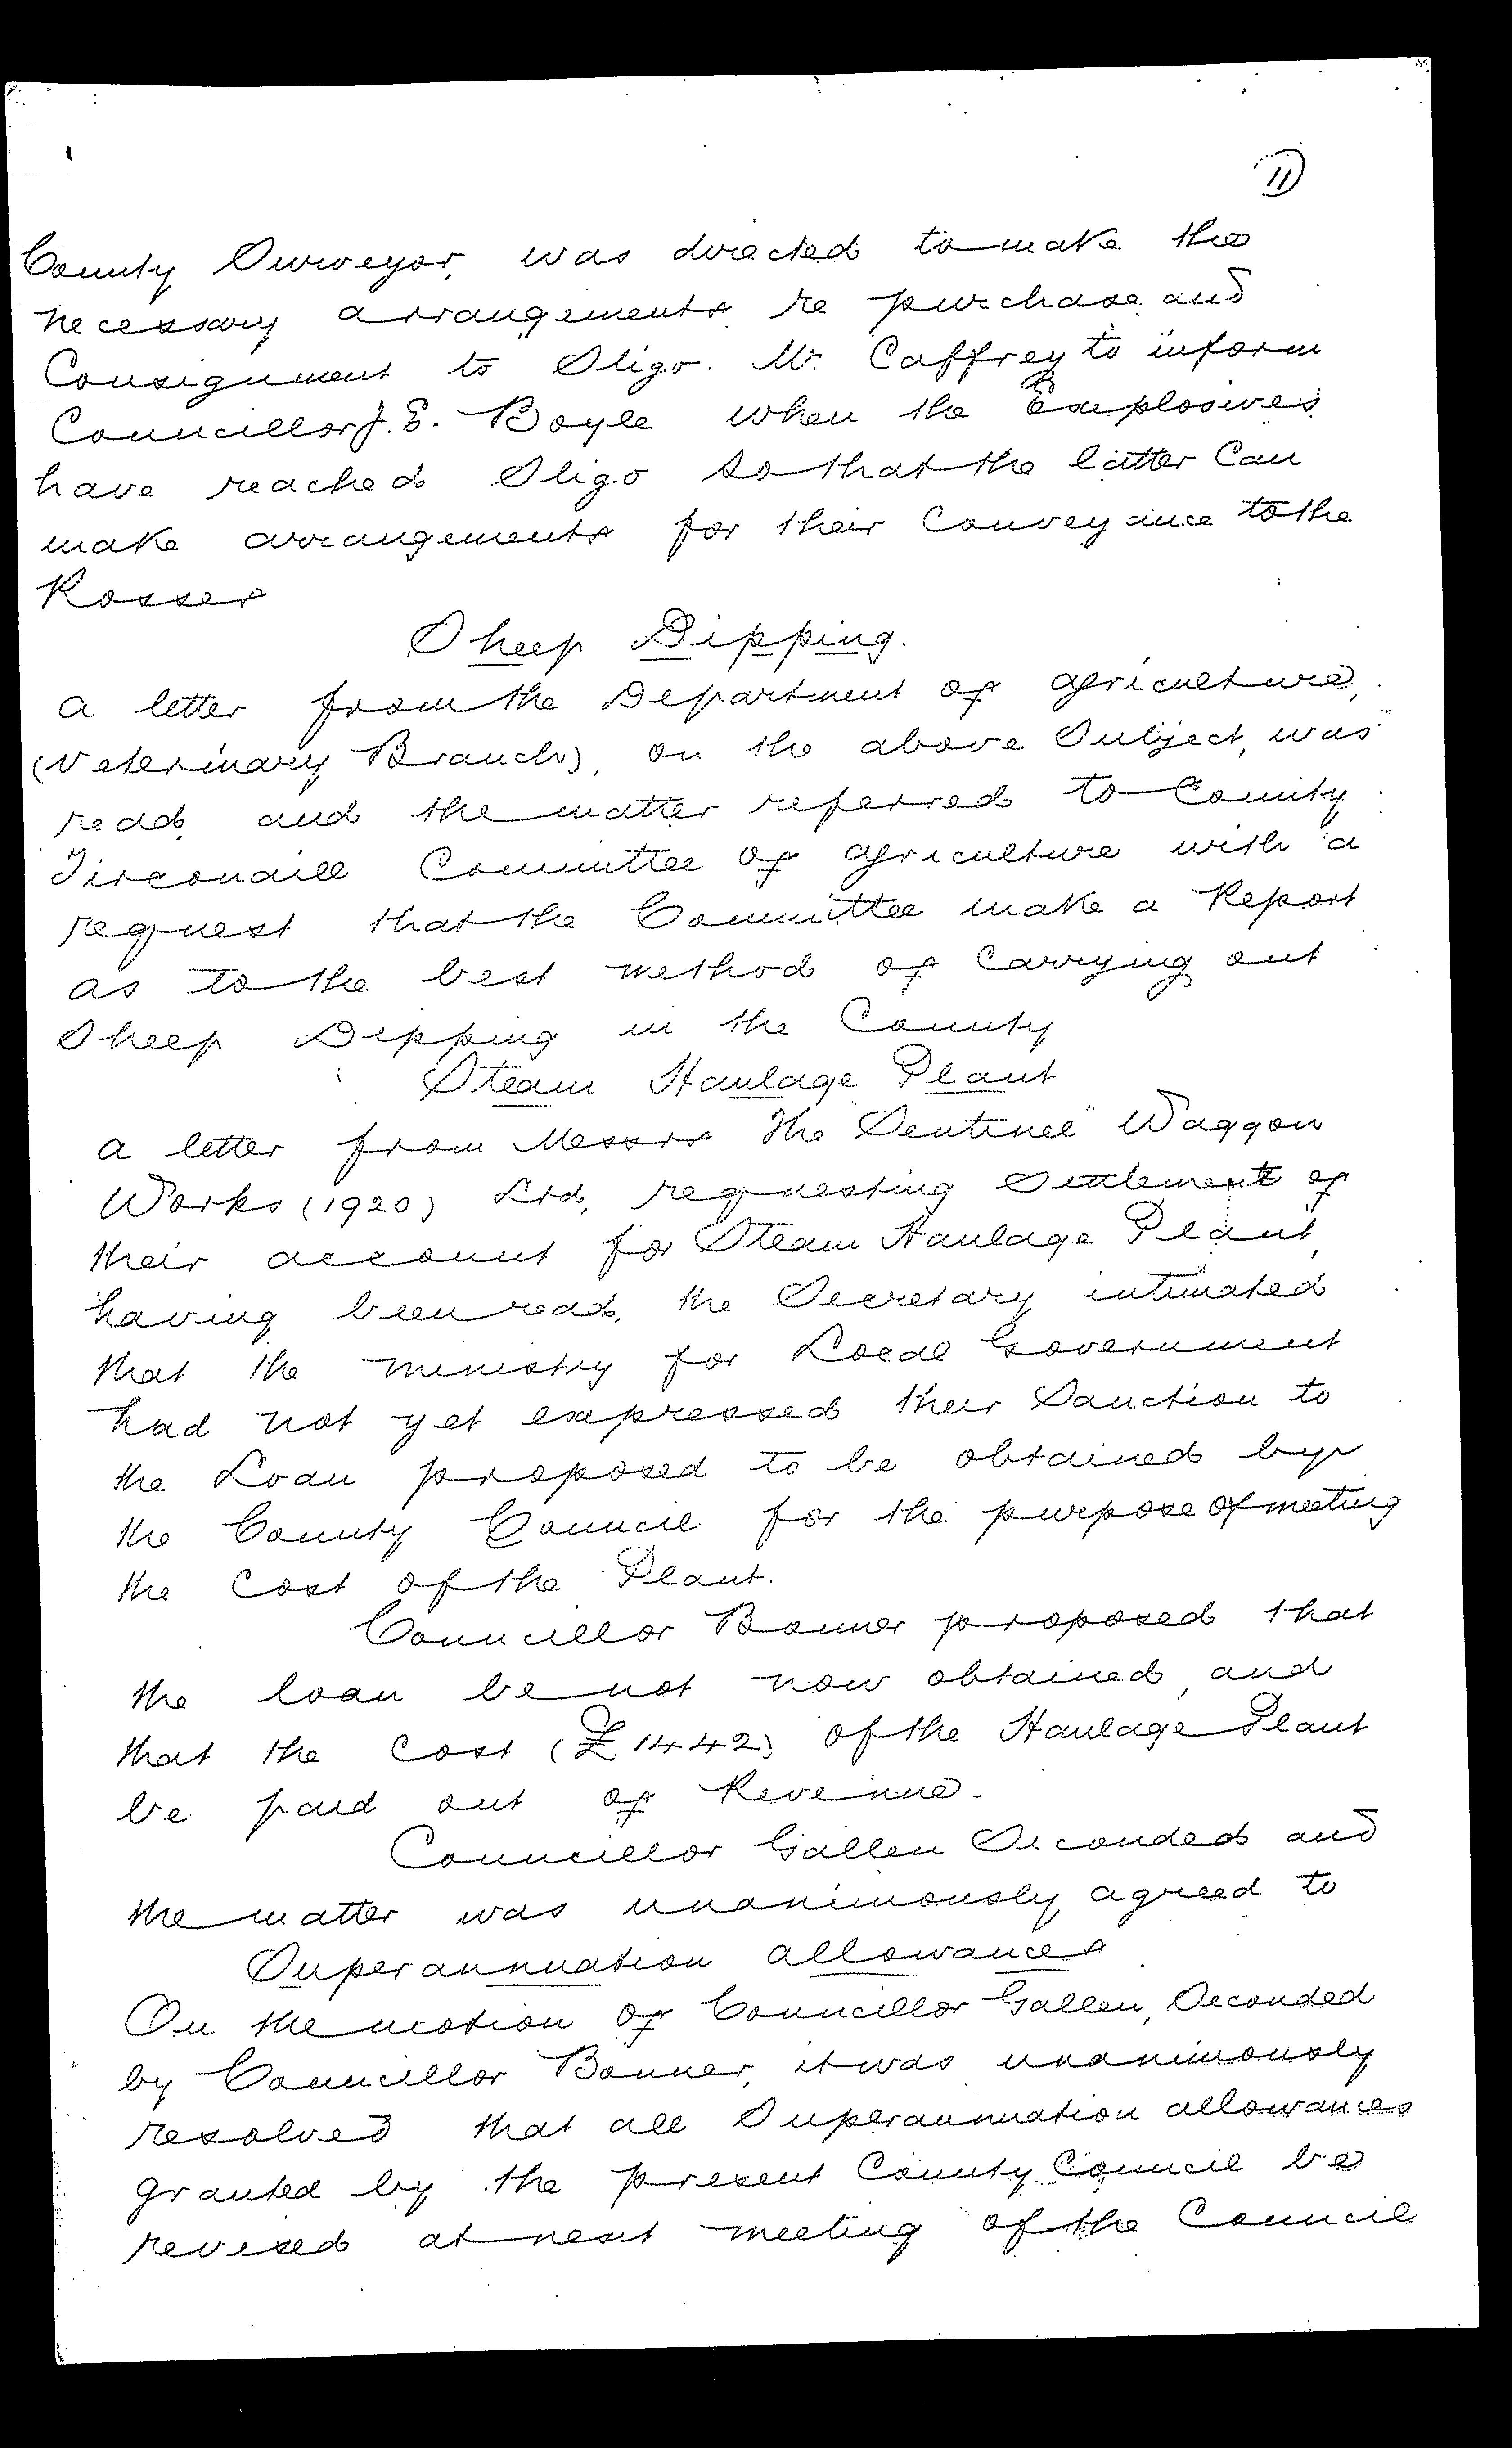 11
County Surveyor, was directed to make the
necessary arrangements re purchase and
Consignment to Sligo. Mr. Caffrey to inform
Councillor J. E. Boyle when the Explosives
have reached Sligo so that the latter Can
make arrangements for their Conveyance to the
Rosses
Sheep Dipping.
a letter from the Department of agriculture,
(Veterinary Branch), on the above Subject, was
read and the matter referred to County
Tirconaill Committee of agriculture with a
request that the Committee make a Report
as to the best method of Carrying out
Sheep Dipping in the County
Steam Haulage Plant
a letter from Messrs The "Sentinel" Waggon
Works (1920) Ltd, requesting Settlement of
their account for Steam Haulage Plant,
having been read, the Secretary intimated
that the ministry for Local Government
had not yet expressed their Sanction to
the Loan proposed to be obtained by
the County Council for the purpose of meeting
the Cost of the Plant.
Councillor Bonner proposed that
the loan be not now obtained, and
that the Cost (£1442) of the Haulage Plant
be paid out of Revenue.
Councillor Gallen Seconded and
the matter was unanimously agreed to
Superannuation allowances
On the motion of Councillor Gallen, Seconded
by Councillor Bonner, it was unanimously
resolved that all Superannuation allowances
granted by the present County Council be
revised at next meeting of the Council